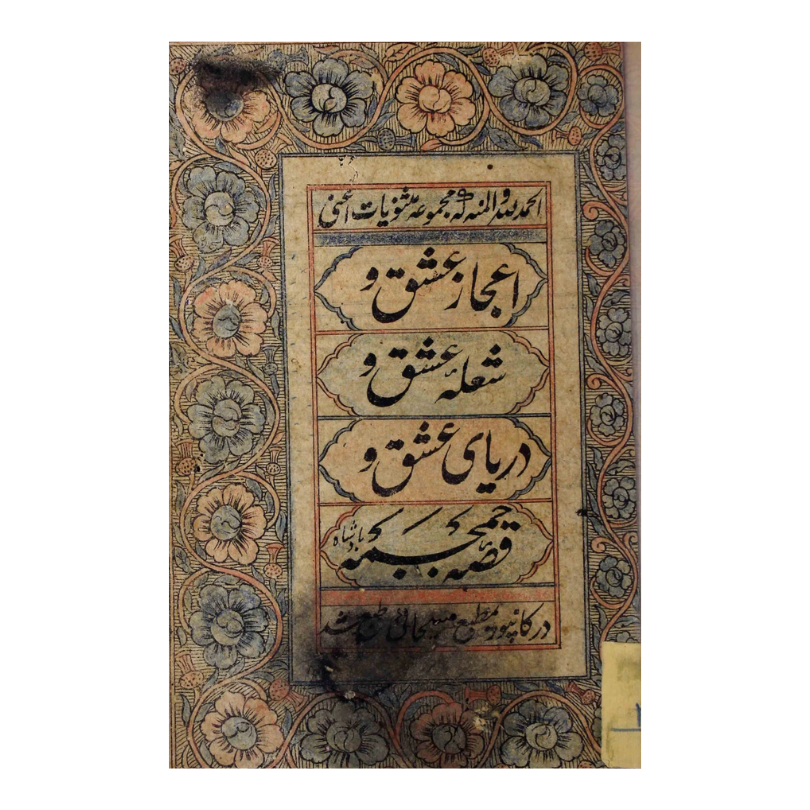 الحمد للہ والمنہ کہ مجموعہ مثنویات اعنی
اعجاز عشق و
شعلۂ عشق و
دریای عشق و
قصۂ جمجمہ بادشاہ
در کانپور بمطبع مسیحائی طبع شد